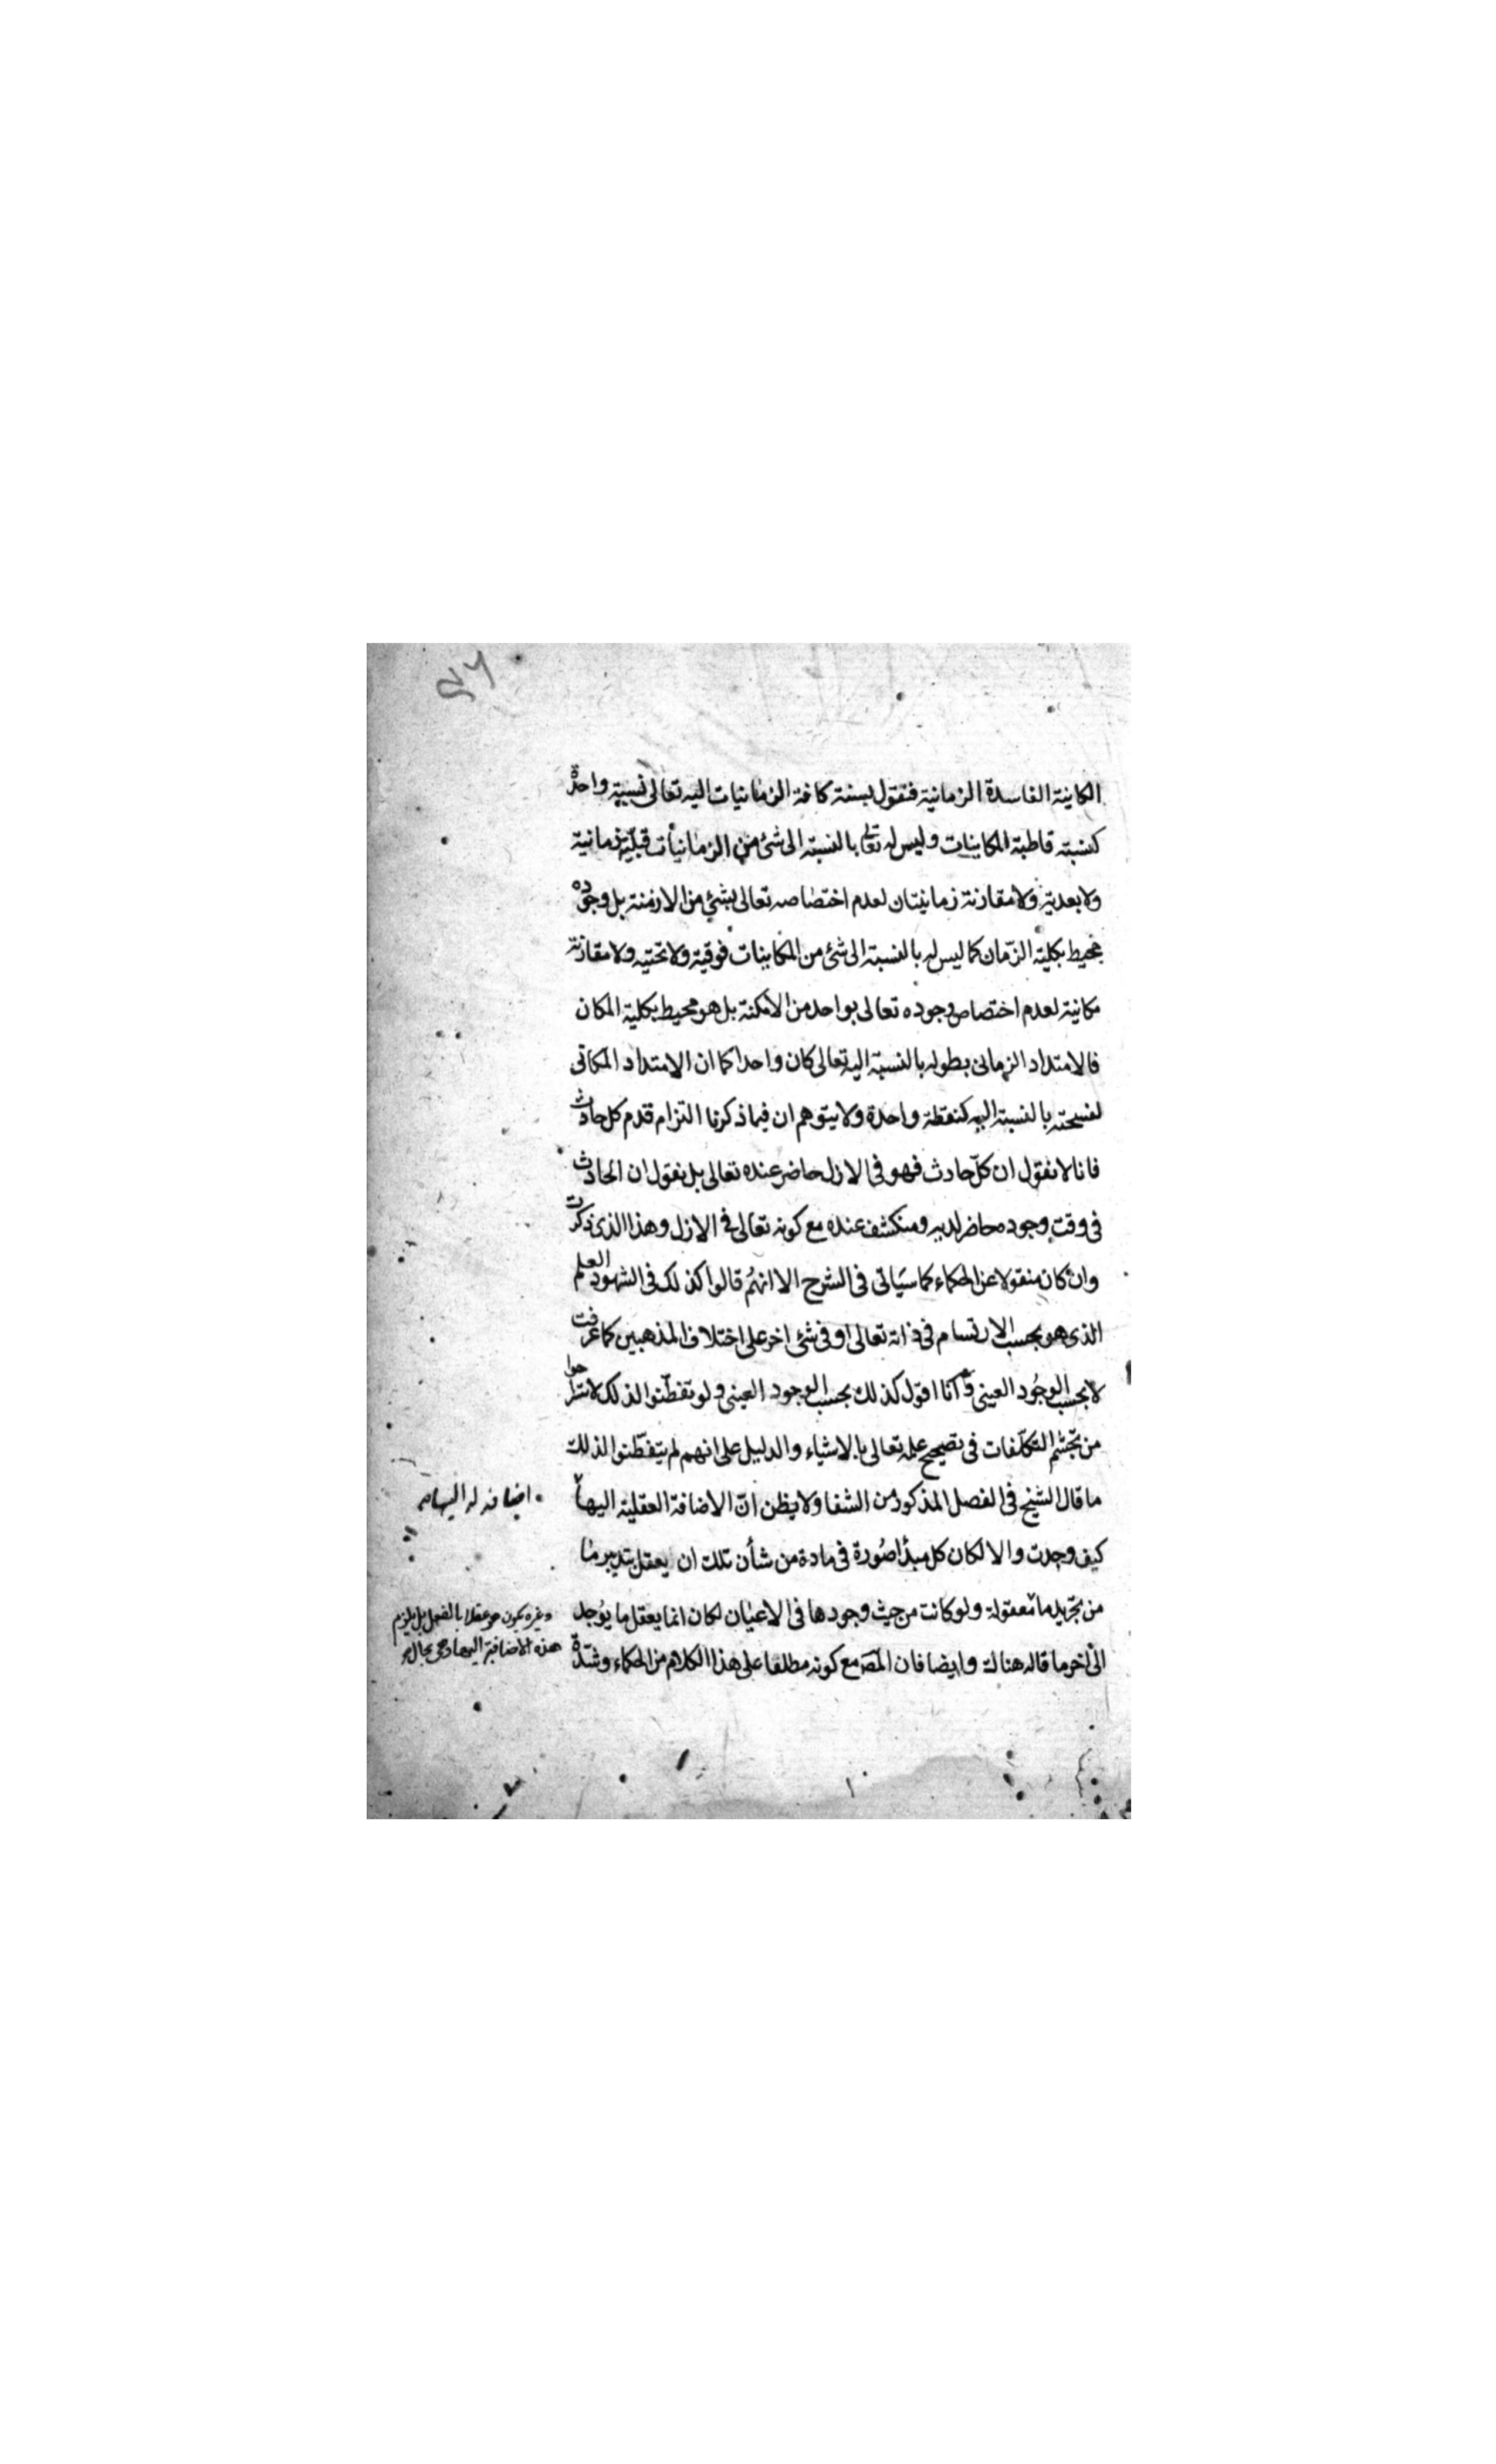 ٤٦
الكاينة الفاسدة الزمانية فنقول نسبة كافة الزمانيات اليه تعالى نسبة واحدة
كنسبة قاطبة المكاينات وليس له تعالى بالنسبة الى شئ من الزمانيات قبلية زمانية
ولا بعدية ولا مقارنة زمانيتان لعدم اختصاصه تعالى بشئ من الازمنة بل وجوده
محيط بكلية الزمان كما ليس له بالنسبة الى شئ من المكاينات فوقية ولا تحتيه ولا مقارنة
مكانية لعدم اختصاص وجوده تعالى بواحد من الامكنة بل هو محيط بكلية المكان
فالامتداد الزمانى بطوله بالنسبة اليه تعالى كان واحدا كما ان الامتداد المكانى
لفسحته بالنسبة اليه كنقطة واحدة ولا يتوهم ان فيما ذكرنا التزام قدم كل حادث
فانا لا نقول ان كل حادث فهو فى الازل حاضر عنده تعالى بل نقول ان الحادث
فى وقت وجوده حاضر لديه ومنكشف عنده مع كونه تعالى فى الازل وهذا الذى ذكرت
وان كان منقولا عن الحكماء كما سياتى فى الشرح الا انهم قالوا كذلك فى الشهود العلم
الذى هو بحسب الارتسام فى ذاته تعالى او فى شئ اخر على اختلاف المذهبين كما عرفت
لا بحسب الوجود العينى وانا اقول كذلك بحسب الوجود العينى ولو تفطنوا لذلك لاستراحوا
من تجشم التكلفات فى تصحيح علمه تعالى بالاشياء والدليل على انهم لم يتفطنوا لذلك
ما قال الشيخ فى الفصل المذكور من الشفا ولا يظن ان الاضافة العقلية اليها
كيف وجدت والا لكان كل مبدأ صورة فى مادة من شأن تلك ان يعقل بتدبير ما
من تجريد ما معقولة ولو كانت من حيث وجودها فى الاعيان لكان انما يعقل ما يوجد
الى اخر ما قاله هناك وايضا فان المص مع كونه مطلعا على هذا الكلام من الحكماء وشدة
اضافة له اليها
وغيره يكون هو عقلا بالفعل بل يلزم
هذه الاضافة اليها وهى بحال